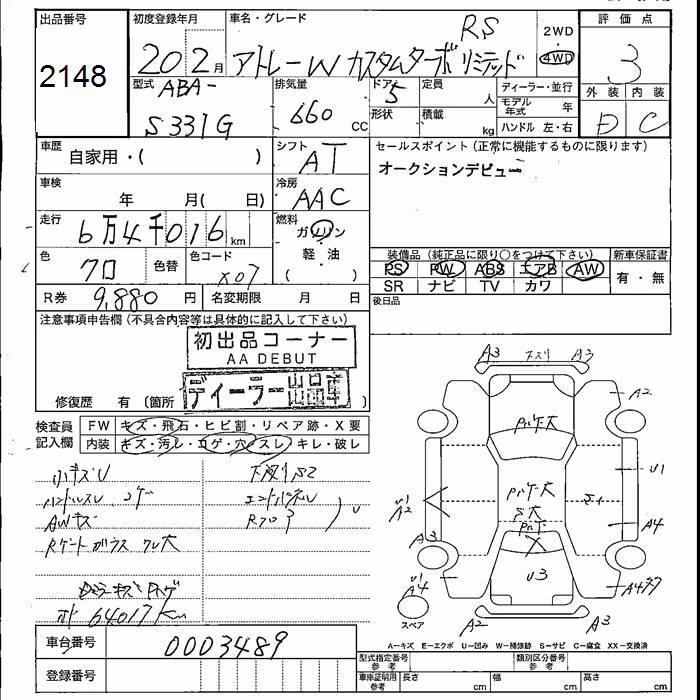 出品番号 初度登録年月 車名・グレード 評価点
2148 20 2月 アトレーW カスタムターボ RS リミテッド 2WD 4WD 3
型式 排気量 ドア 定員 ディーラー・並行 外装 内装
ABA- S331G 660 CC 5 人 モデル年式 年 D C
形状 積載 kg ハンドル 左・右
車歴 シフト セールスポイント(正常に機能するものに限ります)
自家用・( ) AT オークションデビュー
車検 冷房
年 月( 日) AAC
走行 燃料
6万4千016km ガソリン
軽・油
( )
色 色替 色コード 装備品(純正品に限り○をつけて下さい) 新車保証書
クロ X07 PS PW ABS エアB AW 有・無
SR ナビ TV カワ
R券 9,880円 名変期限 月 日 後日品
注意事項申告欄(不具合内容等は具体的に記入して下さい)
初出品コーナー
AA DEBUT
ディーラー出品車
修復歴 有(箇所 )
検査員 FW キズ・飛石・ヒビ割・リペア跡・X要
記入欄 内装 キズ・汚レ・コゲ・穴・スレ・キレ・破レ
小キズU 下廻りS2
ハンドルスレ コゲ
AWキズ
Rゲートガラス
64017km
A3 A3
A2
U1
U1
A2
A4
A3
U3
A4
スペア
A2 A3
車台番号 0003489
A-キズ E-エクボ U-凹み W-補修跡 S-サビ C-腐食 XX-交換済
型式指定番号 参考 類別区分番号 参考
登録番号 車庫証明用 参考 長さ cm 幅 cm 高さ cm